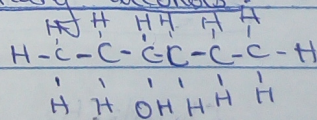 H H H H H H
H-C-C-C-C-C-C-H
H H OH H H H